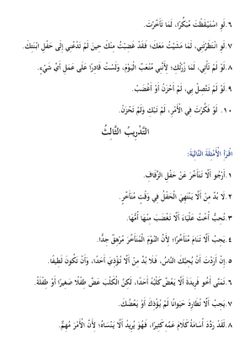 ٦. لَوِ اسْتَيْقَظْتَ مُبَكِّرًا، لَمَا تَأَخَّرْتَ.
٧. لَوِ انْتَظَرْتَنِي، لَمَا مَشَيْتُ مَعَكَ؛ فَقَدْ غَضِبْتُ مِنْكَ حِينَ لَمْ تَدْعُنِي إِلَى حَفْلِ ابْنَتِكَ.
٨. لَوْ لَمْ تَأْتِنِي، لَمَا زُرْتُكَ؛ لِأَنَّنِي مُتْعَبٌ الْيَوْمَ، وَلَسْتُ قَادِرًا عَلَى عَمَلِ أَيِّ شَيْءٍ.
٩. لَوْ لَمْ تَتَّصِلْ بِي، لَمْ أَحْزَنْ أَوْ أَغْضَبْ.
١٠. لَوْ فَكَّرْتَ فِي الْأَمْرِ، لَمْ تَبْكِ وَلَمْ تَحْزَنْ.
التَّدْرِيبُ الثَّالِثُ
اقْرَأِ الْأَمْثِلَةَ التَّالِيَةَ:
١. أَرْجُو أَلَّا تَتَأَخَّرَ عَنْ حَفْلِ الزِّفَافِ.
٢. لَا بُدَّ مِنْ أَلَّا يَنْتَهِيَ الْحَفْلُ فِي وَقْتٍ مُتَأَخِّرٍ.
٣. تُحِبُّ أُخْتُ عَلْيَاءَ أَلَّا تَغْضَبَ مِنْهَا أُمُّهَا.
٤. يَجِبُ أَلَّا تَنَامَ مُتَأَخِّرًا؛ لِأَنَّ النَّوْمَ الْمُتَأَخِّرَ مُرْهِقٌ جِدًّا.
٥. إِنْ أَرَدْتَ أَنْ يُحِبَّكَ النَّاسُ، فَلَا بُدَّ مِنْ أَلَّا تُؤْذِيَ أَحَدًا، وَأَنْ تَكُونَ لَطِيفًا.
٦. تَمَنَّى أَخُو فَرِيدَةَ أَلَّا يَعَضَّ كَلْبُهُ أَحَدًا، لَكِنَّ الْكَلْبَ عَضَّ طِفْلًا صَغِيرًا أَوْ طِفْلَةً.
٧. يَجِبُ أَلَّا تُطَارِدَ حَيَوَانًا لَمْ يُؤْذِكَ أَوْ يَعَضَّكَ.
٨. لَقَدْ رَدَّدَ أُسَامَةُ كَلَامَ عَمِّهِ كَثِيرًا، فَهُوَ يُرِيدُ أَلَّا يَنْسَاهُ؛ لِأَنَّ الْأَمْرَ مُهِمٌّ.